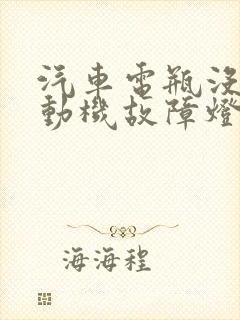 汽車電瓶沒
動機故障燈
海海程